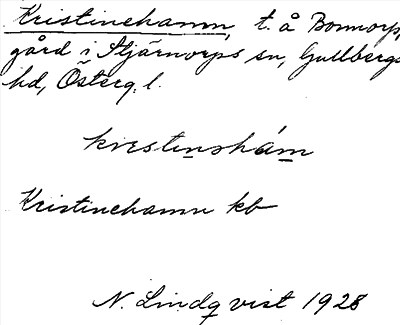 Kristinehamn, t. å Bonnorp,
gård i Stjärnorps sn, Gullbergs
hd, Österg. l.
krestinshám
Kristinehamn kb
N. Lindqvist 1928